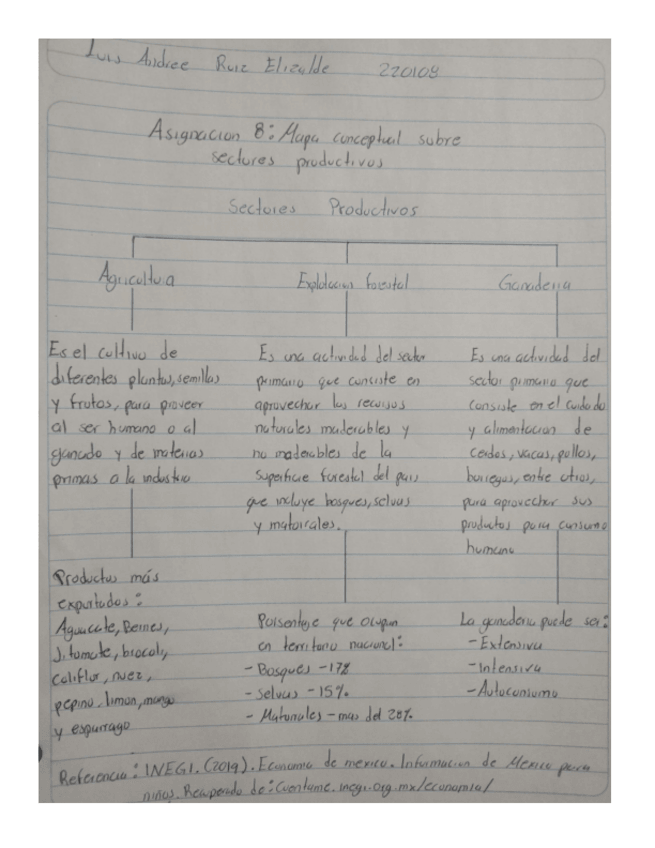 Luis Andree Ruiz Elizalde 220109
Asignacion 8: Mapa conceptual sobre
sectores productivos
Sectores Productivos
Agricultura
Explotacion forestal
Ganaderia
Es el cultivo de
diferentes plantas, semillas
y frutos, para proveer
al ser humano o al
ganado y de materias
primas a la industria
Productos más
exportados:
Aguacate, Berries,
Jitomate, brocoli,
coliflor, nuez,
pepino, limon, mango
y esparrago
Es una actividad del sector
primario que consiste en
aprovechar los recursos
naturales maderables y
no maderables de la
superficie forestal del pais
que incluye bosques, selvas
y matorrales.
Porsentaje que ocupan
en territorio nacional:
- Bosques - 17%
- Selvas - 15%
- Matorrales - mas del 20%
Es una actividad del
sector primario que
consiste en el cuidado
y alimentacion de
cerdos, vacas, pollos,
borregos, entre otros,
para aprovechar sus
productos para consumo
humano
La ganaderia puede ser:
- Extensiva
- Intensiva
- Autoconsumo
Referencia: INEGI. (2019). Economia de mexico. Informacion de Mexico para
niños. Recuperado de: Cuentame.inegi.org.mx/economia/